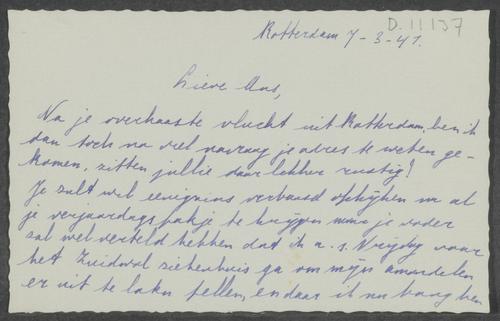 D.11137
Rotterdam 7-3-41.
Lieve Ans,
Na je overhaaste vlucht uit Rotterdam, ben ik
dan toch na veel navraag je adres te weten ge-
komen, zitten jullie daar lekker rustig!
Je zult wel eenigzins verbaasd opkijken nu al
je verjaardagspakje te krijgen maar je vader
zal wel verteld hebben dat ik a.s. Vrijdag naar
het Zuidwal ziekenhuis ga om mijn amandelen
er uit te laten pellen, en daar ik nu bang ben